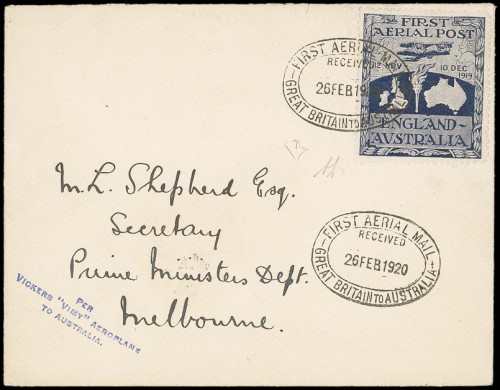 FIRST
AERIAL POST
10 DEC
1919
ENGLAND-
AUSTRALIA
FIRST AERIAL MAIL
RECEIVED
26FEB1920
GREAT BRITAIN TO AUSTRALIA
M. L. Shepherd Esq.
Secretary
Prime Ministers Dept.
Melbourne.
FIRST AERIAL MAIL
RECEIVED
26FEB1920
GREAT BRITAIN TO AUSTRALIA
PER
VICKERS "VIMY" AEROPLANE
TO AUSTRALIA.